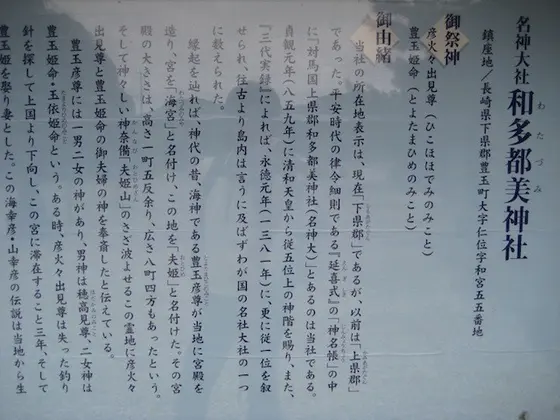 名神大社 和多都美神社
わたづみ
鎮座地／長崎県下県郡豊玉町大字仁位字和宮五五番地
御祭神
彦火々出見尊(ひこほほでみのみこと)
豊玉姫命(とよたまひめのみこと)
御由緒
当社の所在地表示は、現在「下県郡」であるが、以前は「上県郡」
であった。平安時代の律令細則である『延喜式』の「神名帳」の中
に「対馬国上県郡和多都美神社(名神大)」とあるのは当社である。
貞観元年(八五九年)に清和天皇から従五位上の神階を賜り、また、
『三代実録』によれば、永徳元年(一三八一年)に、更に従一位を叙
せられ、往古より島内は言うに及ばずわが国の名社大社の一つ
に数えられた。
縁起を辿れば、神代の昔、海神である豊玉彦尊が当地に宮殿を
造り、宮を「海宮」と名付け、この地を「夫姫」と名付けた。その宮
殿の大きさは、高さ一町五反余り、広さ八町四方もあったという。
そして神々しい神奈備「夫姫山」のさざ波よせるこの霊地に彦火々
出見尊と豊玉姫命の御夫婦の神を奉斎したと伝えている。
豊玉彦尊には一男二女の神があり、男神は穂高見尊、二女神は
豊玉姫命・玉依姫命という。ある時、彦火々出見尊は失った釣り
針を探して上国より下向し、この宮に滞在すること三年、そして
豊玉姫を娶り妻とした。この海幸彦・山幸彦の伝説は当地から生